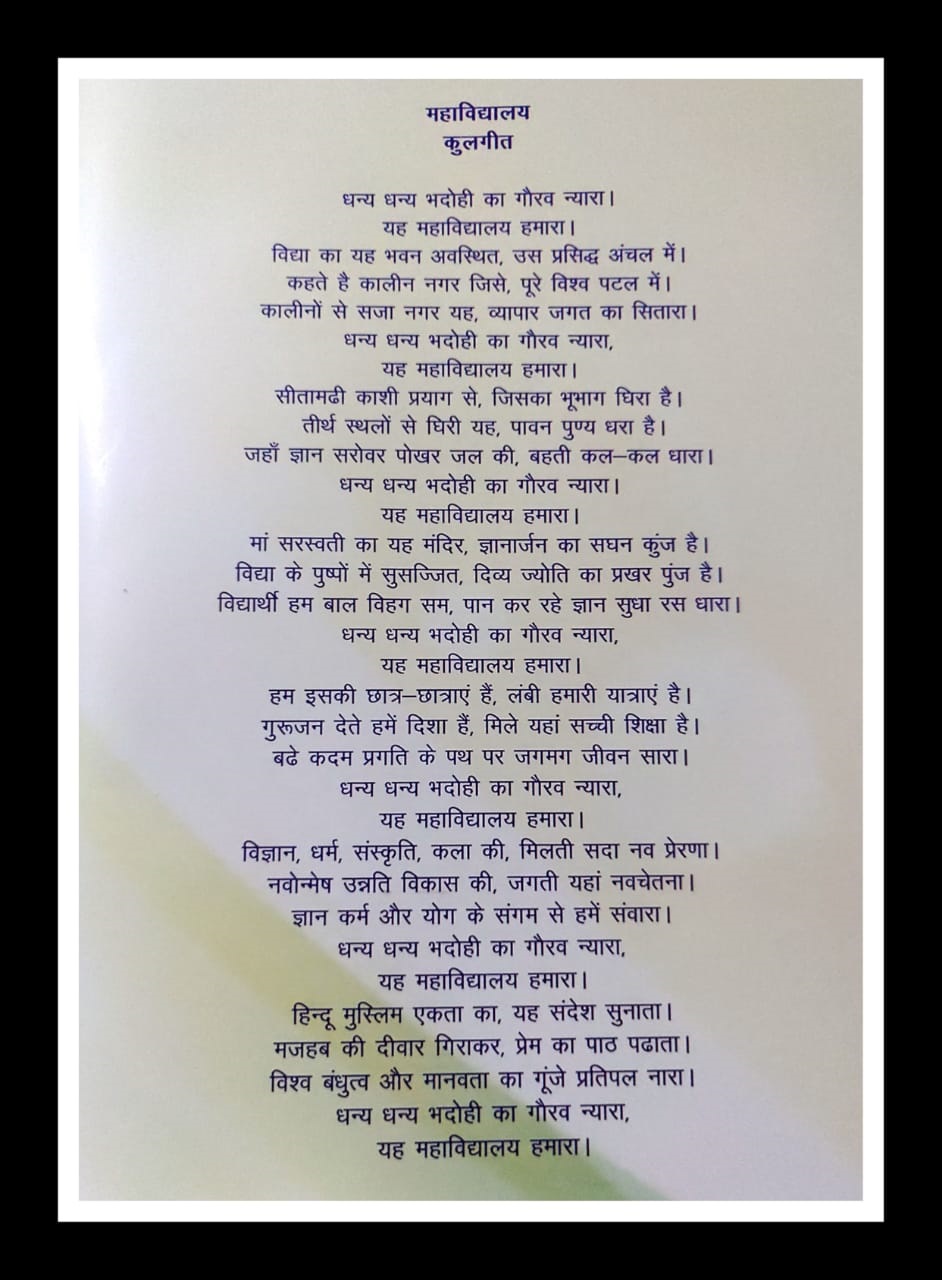 महाविद्यालय
कुलगीत
धन्य धन्य भदोही का गौरव न्यारा।
यह महाविद्यालय हमारा।
विद्या का यह भवन अवस्थित, उस प्रसिद्ध अंचल में।
कहते है कालीन नगर जिसे, पूरे विश्व पटल में।
कालीनों से सजा नगर यह, व्यापार जगत का सितारा।
धन्य धन्य भदोही का गौरव न्यारा,
यह महाविद्यालय हमारा।
सीतामढी काशी प्रयाग से, जिसका भूभाग घिरा है।
तीर्थ स्थलों से घिरी यह, पावन पुण्य धरा है।
जहाँ ज्ञान सरोवर पोखर जल की, बहती कल–कल धारा।
धन्य धन्य भदोही का गौरव न्यारा।
यह महाविद्यालय हमारा।
मां सरस्वती का यह मंदिर, ज्ञानार्जन का सघन कुंज है।
विद्या के पुष्पों में सुसज्जित, दिव्य ज्योति का प्रखर पुंज है।
विद्यार्थी हम बाल विहग सम, पान कर रहे ज्ञान सुधा रस धारा।
धन्य धन्य भदोही का गौरव न्यारा,
यह महाविद्यालय हमारा।
हम इसकी छात्र–छात्राएं हैं, लंबी हमारी यात्राएं है।
गुरूजन देते हमें दिशा हैं, मिले यहां सच्ची शिक्षा है।
बढे कदम प्रगति के पथ पर जगमग जीवन सारा।
धन्य धन्य भदोही का गौरव न्यारा,
यह महाविद्यालय हमारा।
विज्ञान, धर्म, संस्कृति, कला की, मिलती सदा नव प्रेरणा।
नवोन्मेष उन्नति विकास की, जगती यहां नवचेतना।
ज्ञान कर्म और योग के संगम से हमें संवारा।
धन्य धन्य भदोही का गौरव न्यारा,
यह महाविद्यालय हमारा।
हिन्दू मुस्लिम एकता का, यह संदेश सुनाता।
मजहब की दीवार गिराकर, प्रेम का पाठ पढाता।
विश्व बंधुत्व और मानवता का गूंजे प्रतिपल नारा।
धन्य धन्य भदोही का गौरव न्यारा,
यह महाविद्यालय हमारा।